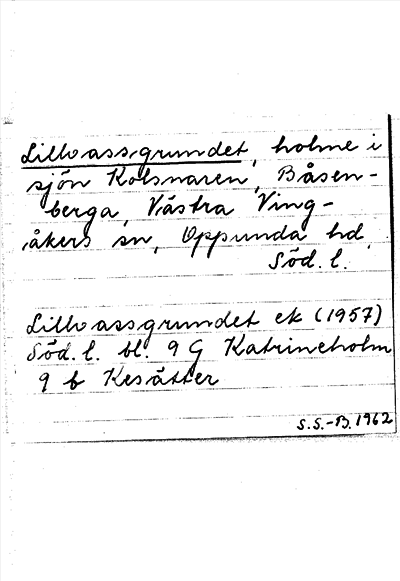 Lillvassgrundet, holme i
sjön Kolsnaren, Båsen-
berga, Västra Ving-
åkers sn, Oppunda hd.
Söd. l.
Lillvassgrundet ek (1957)
Söd. l. bl. 9 G Katrineholm
9 b Kesätter
S.S.-B. 1962